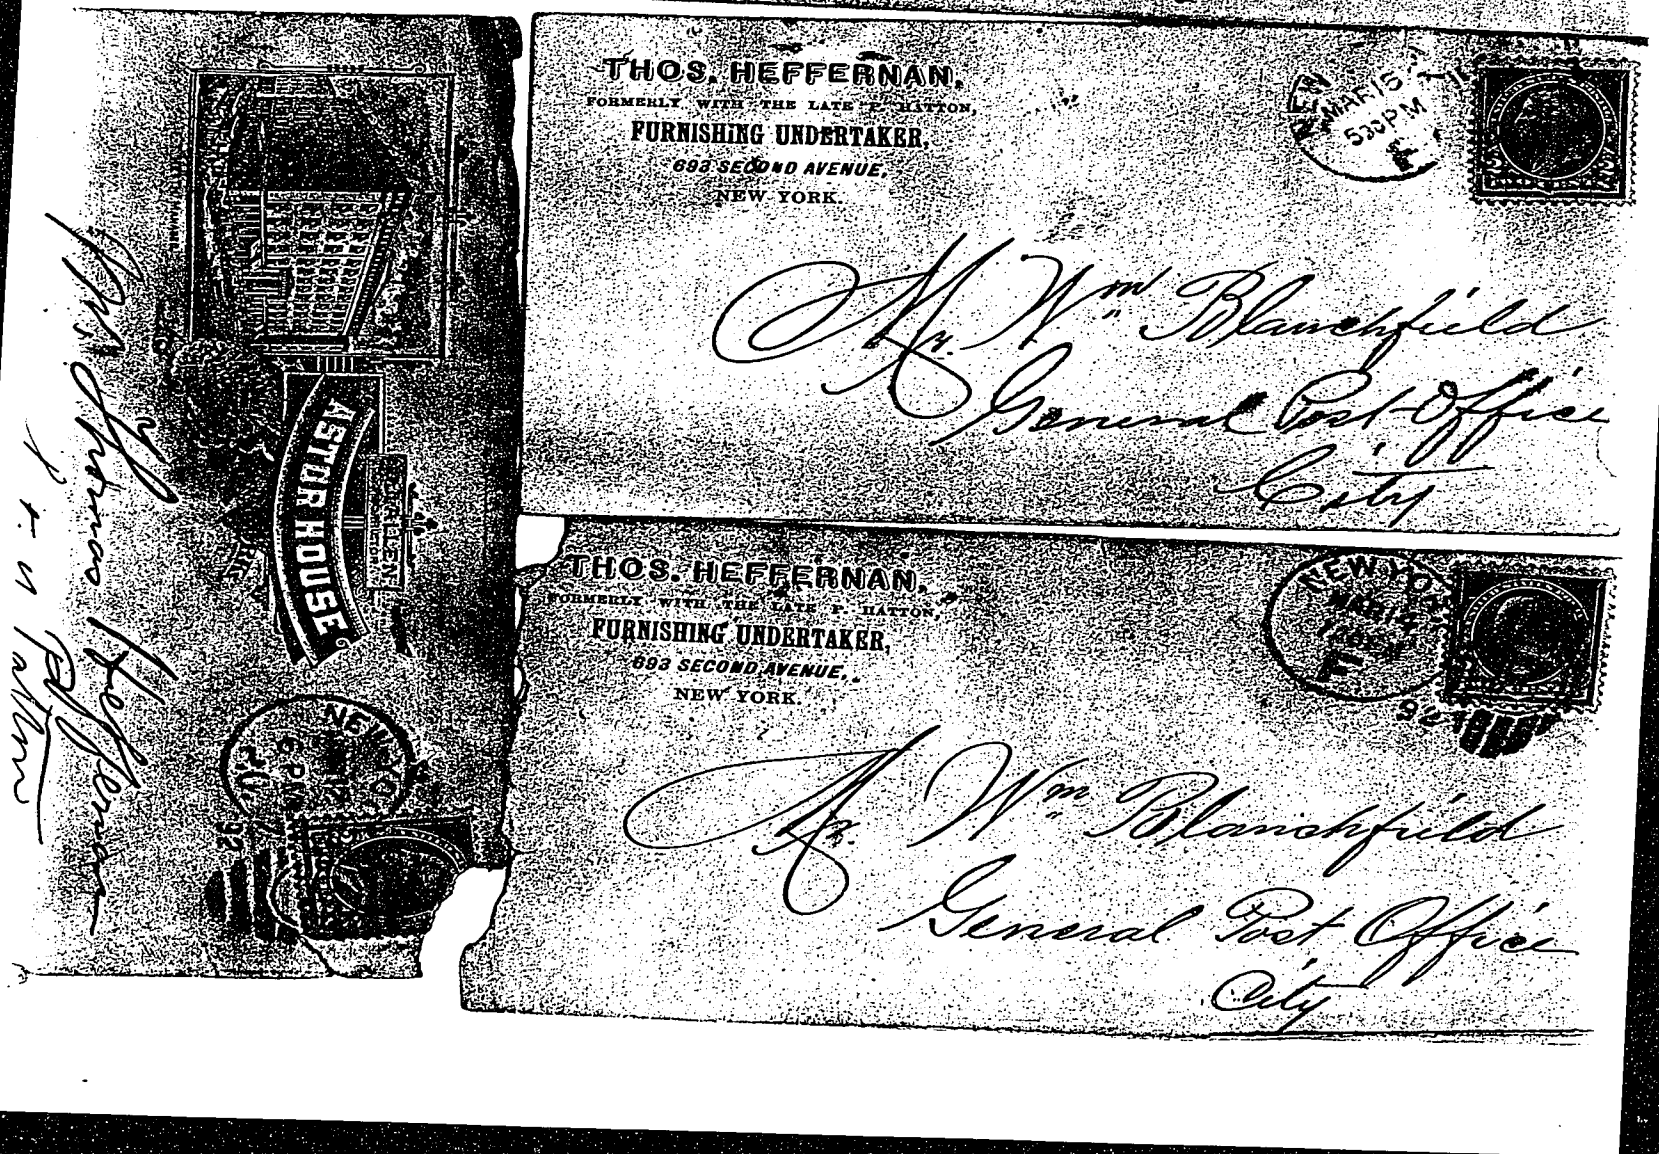 THOS. HEFFERNAN,
FORMERLY WITH THE LATE P. HATTON,
FURNISHING UNDERTAKER,
693 SECOND AVENUE,
NEW YORK.
NEW
MAR 15
530 PM
Mr. Wm Blanchfield
General Post Office
City
THOS. HEFFERNAN,
FORMERLY WITH THE LATE P. HATTON,
FURNISHING UNDERTAKER,
693 SECOND AVENUE,
NEW YORK.
NEW YORK
MAR 14
F
92
Mr. Wm Blanchfield
General Post Office
City
ASTOR HOUSE
ALLEN
NEW YO
6 PM
92
Thomas Heffernan